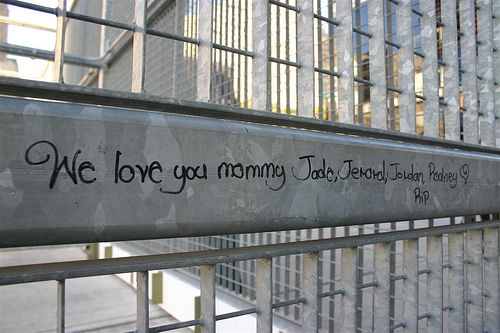 We love you mommy Jade, Jerard, Jordan, Rodney ♡
RIP